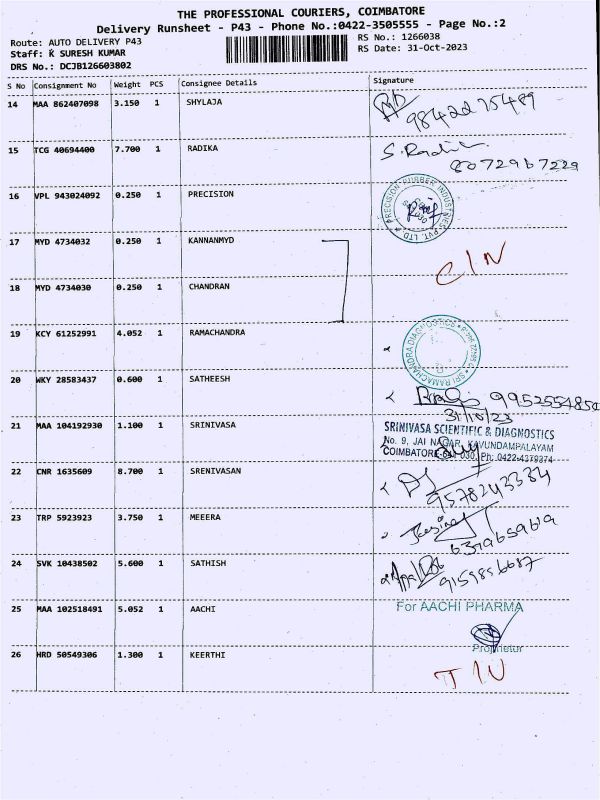 THE PROFESSIONAL COURIERS, COIMBATORE
Delivery Runsheet - P43 - Phone No.:0422-3505555 - Page No.:2
Route: AUTO DELIVERY P43
RS No.: 1266038
Staff: K SURESH KUMAR
RS Date: 31-Oct-2023
DRS No.: DCJB126603802
S No Consignment No Weight PCS Consignee Details Signature
14 MAA 862407098 3.150 1 SHYLAJA
15 TCG 40694400 7.700 1 RADIKA S. Radik
8072967229
16 VPL 943024092 0.250 1 PRECISION
PRECISION RUBBER INDUSTRIES PVT. LTD.
17 MYD 4734032 0.250 1 KANNANMYD
CIN
18 MYD 4734030 0.250 1 CHANDRAN
19 KCY 61252991 4.052 1 RAMACHANDRA
SRI RAMACHANDRA DIAGNOSTICS
20 WKY 28583437 0.600 1 SATHEESH
31/10/23
21 MAA 104192930 1.100 1 SRINIVASA
SRINIVASA SCIENTIFIC & DIAGNOSTICS
No. 9, JAI NAGAR, KAVUNDAMPALAYAM
COIMBATORE-641 030. Ph: 0422-4379374
22 CNR 1635609 8.700 1 SRENIVASAN
9578243334
23 TRP 5923923 3.750 1 MEEERA
24 SVK 10438502 5.600 1 SATHISH
25 MAA 102518491 5.052 1 AACHI
For AACHI PHARMA
Proprietor
26 HRD 50549306 1.300 1 KEERTHI